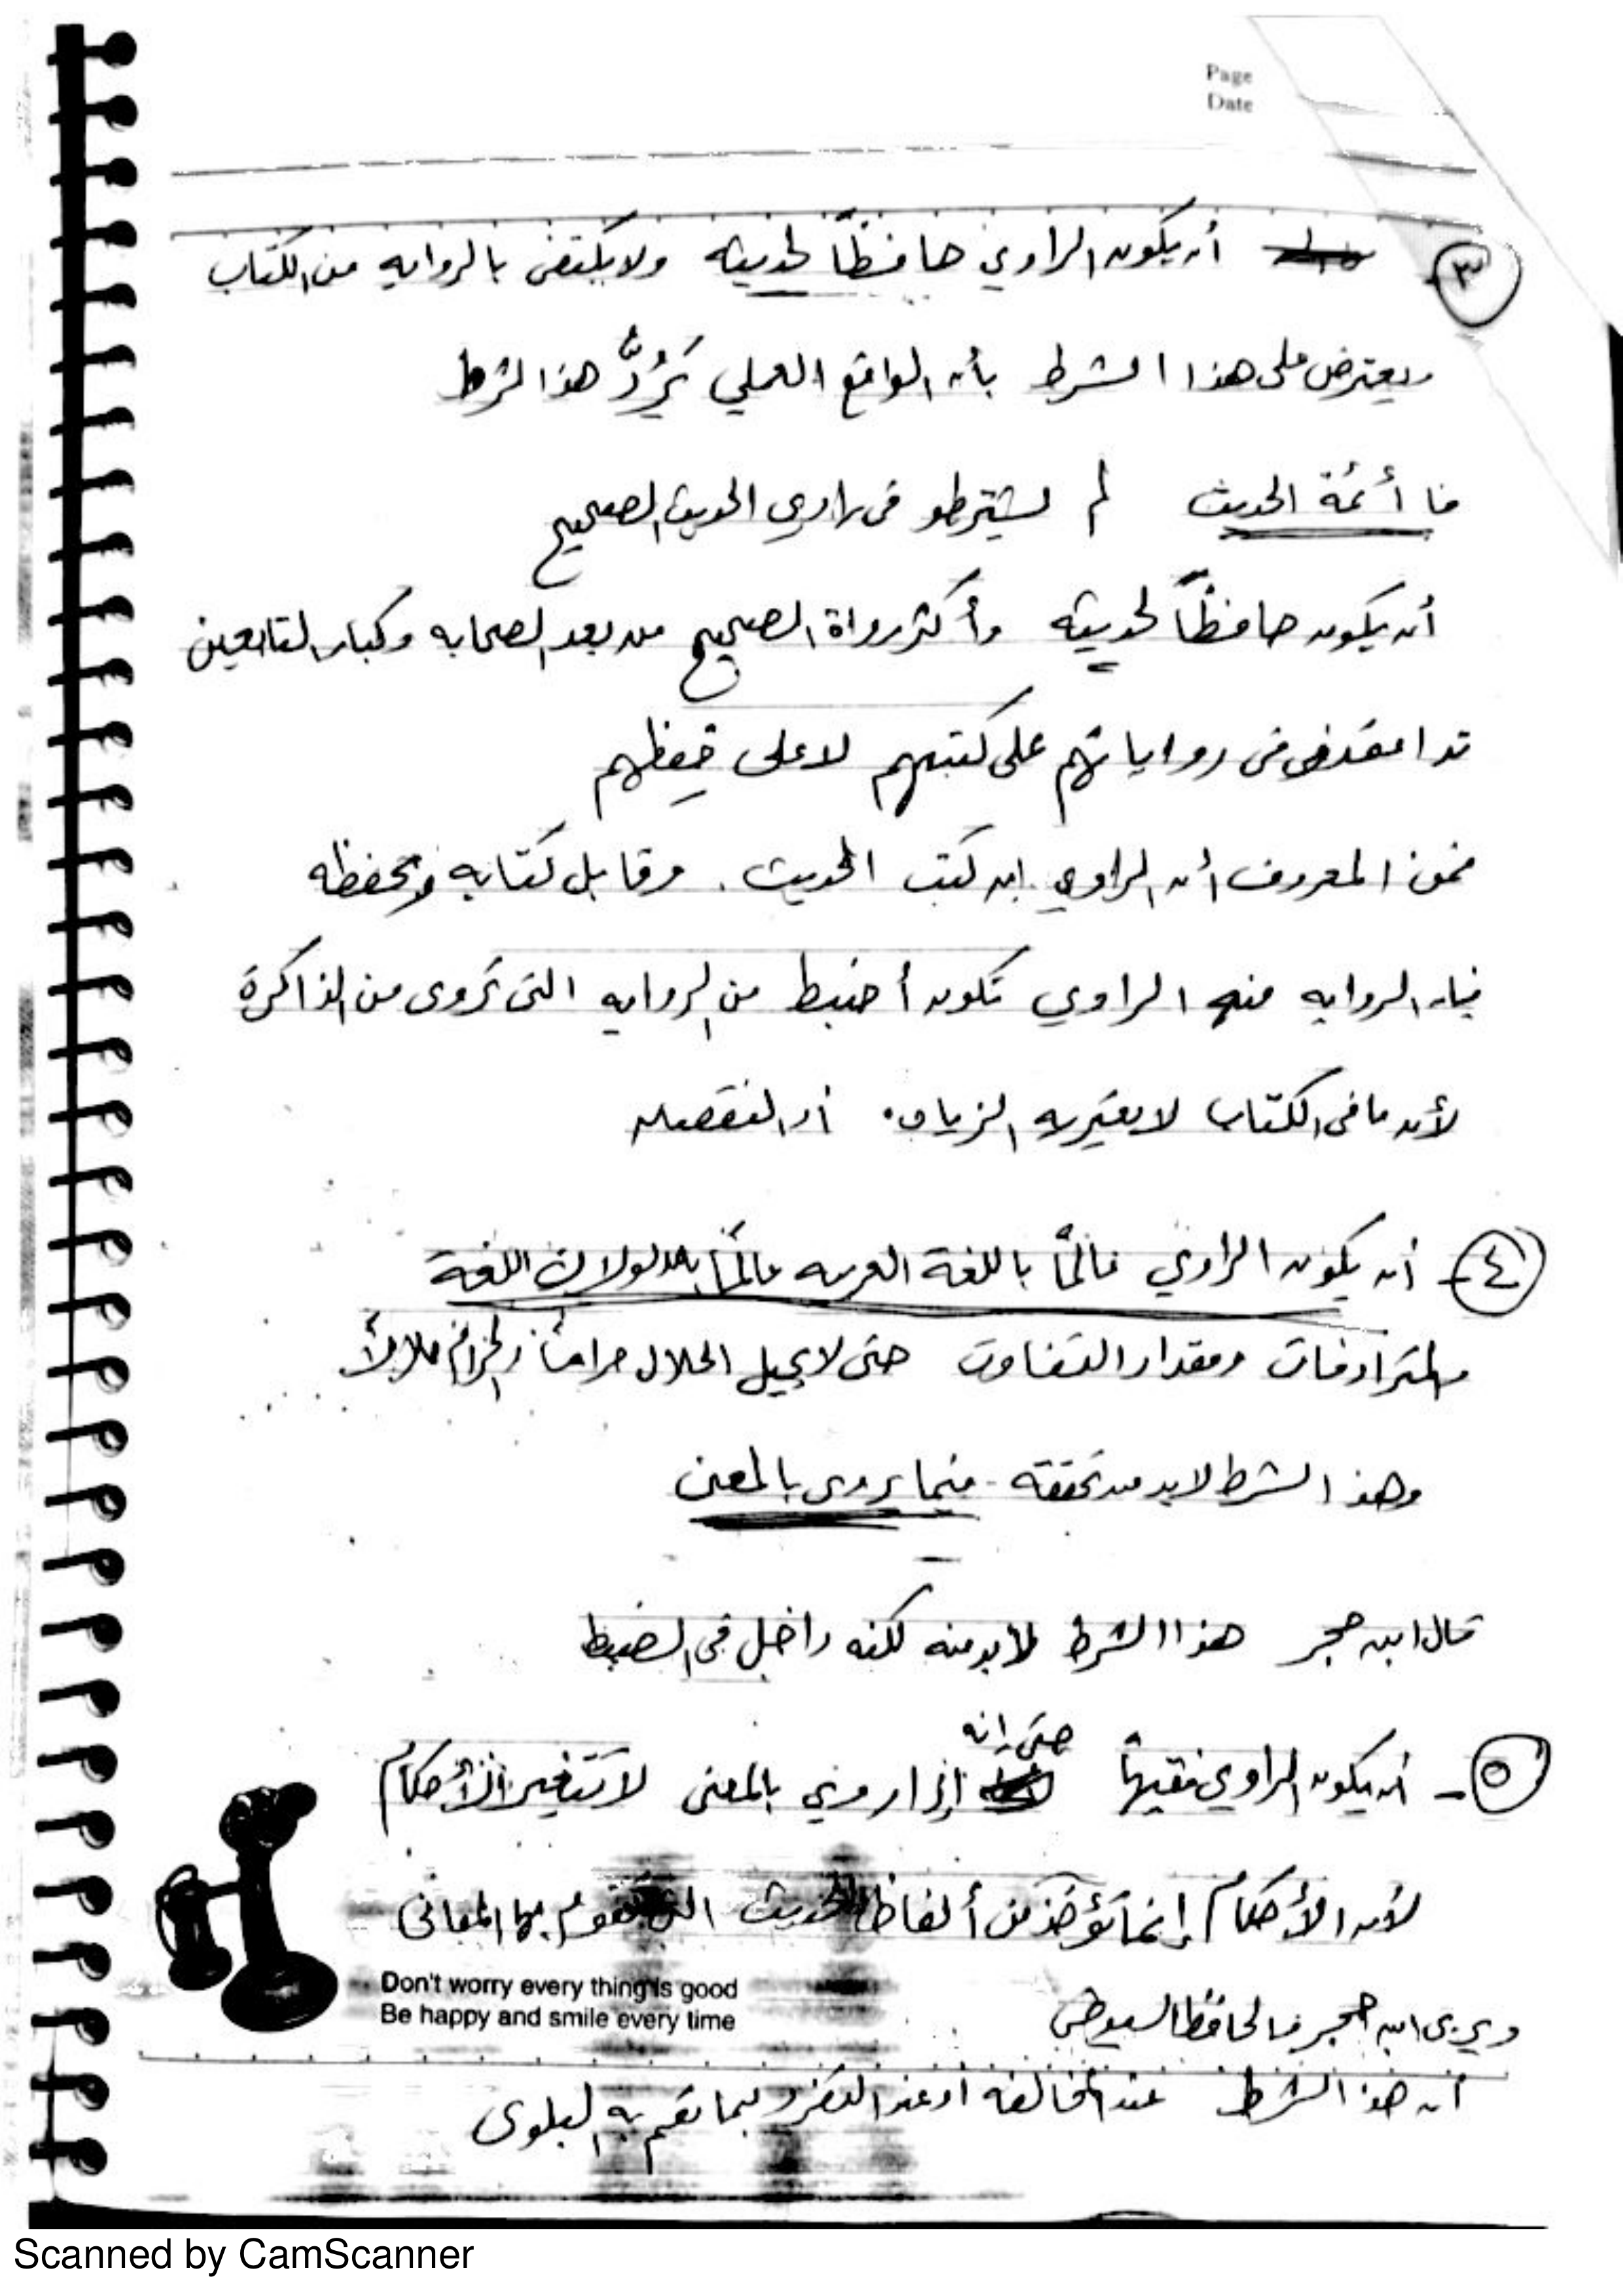 Page
Date
٣ أن يكون الراوي حافظاً لحديثه ولا يكتفى بالروايه من الكتاب
ويعترض على هذا الشرط بأن الواقع العملي يَرُدُّ هذا الشرط
فا أئمة الحديث لم يشترطو فى راوي الحديث الصحيح
أن يكون حافظاً لحديثه وأكثر رواة الصحيح من بعد الصحابه وكبار التابعين
قد اعتمدو فى رواياتهم على كتبهم لا على حفظهم
فمن المعروف أن الراوي إن كتب الحديث . وقابل كتابه وتحفظه
فإن الروايه منه الراوي تكون أضبط من الروايه التى تُروى من الذاكرة
لأن ما فى الكتاب لا يعتريه الزياده أو النقصان
٤- أن يكون الراوي عالماً باللغة العربيه عالماً بمدلولات اللغة
والمترادفات ومقدار التفاوت حتى لا يحيل الحلال حراماً والحرام حلالاً
وهذا الشرط لابد من تحققه - فيما يروى بالمعنى
قال ابن حجر هذا الشرط لابد منه لكنه داخل فى الضبط
٥- أن يكون الراوي فقيهاً حتى إنه إذا روي بالمعنى لا تتغير الأحكام
لأن الأحكام إنما تؤخذ من ألفاظ الحديث التى تقوم بها المعانى
ويرى ابن حجر فالحافظ السيوطي
أن هذا الشرط عند المخالفه او عند التفرد بما تعم به البلوى
Don't worry every thing is good
Be happy and smile every time
Scanned by CamScanner